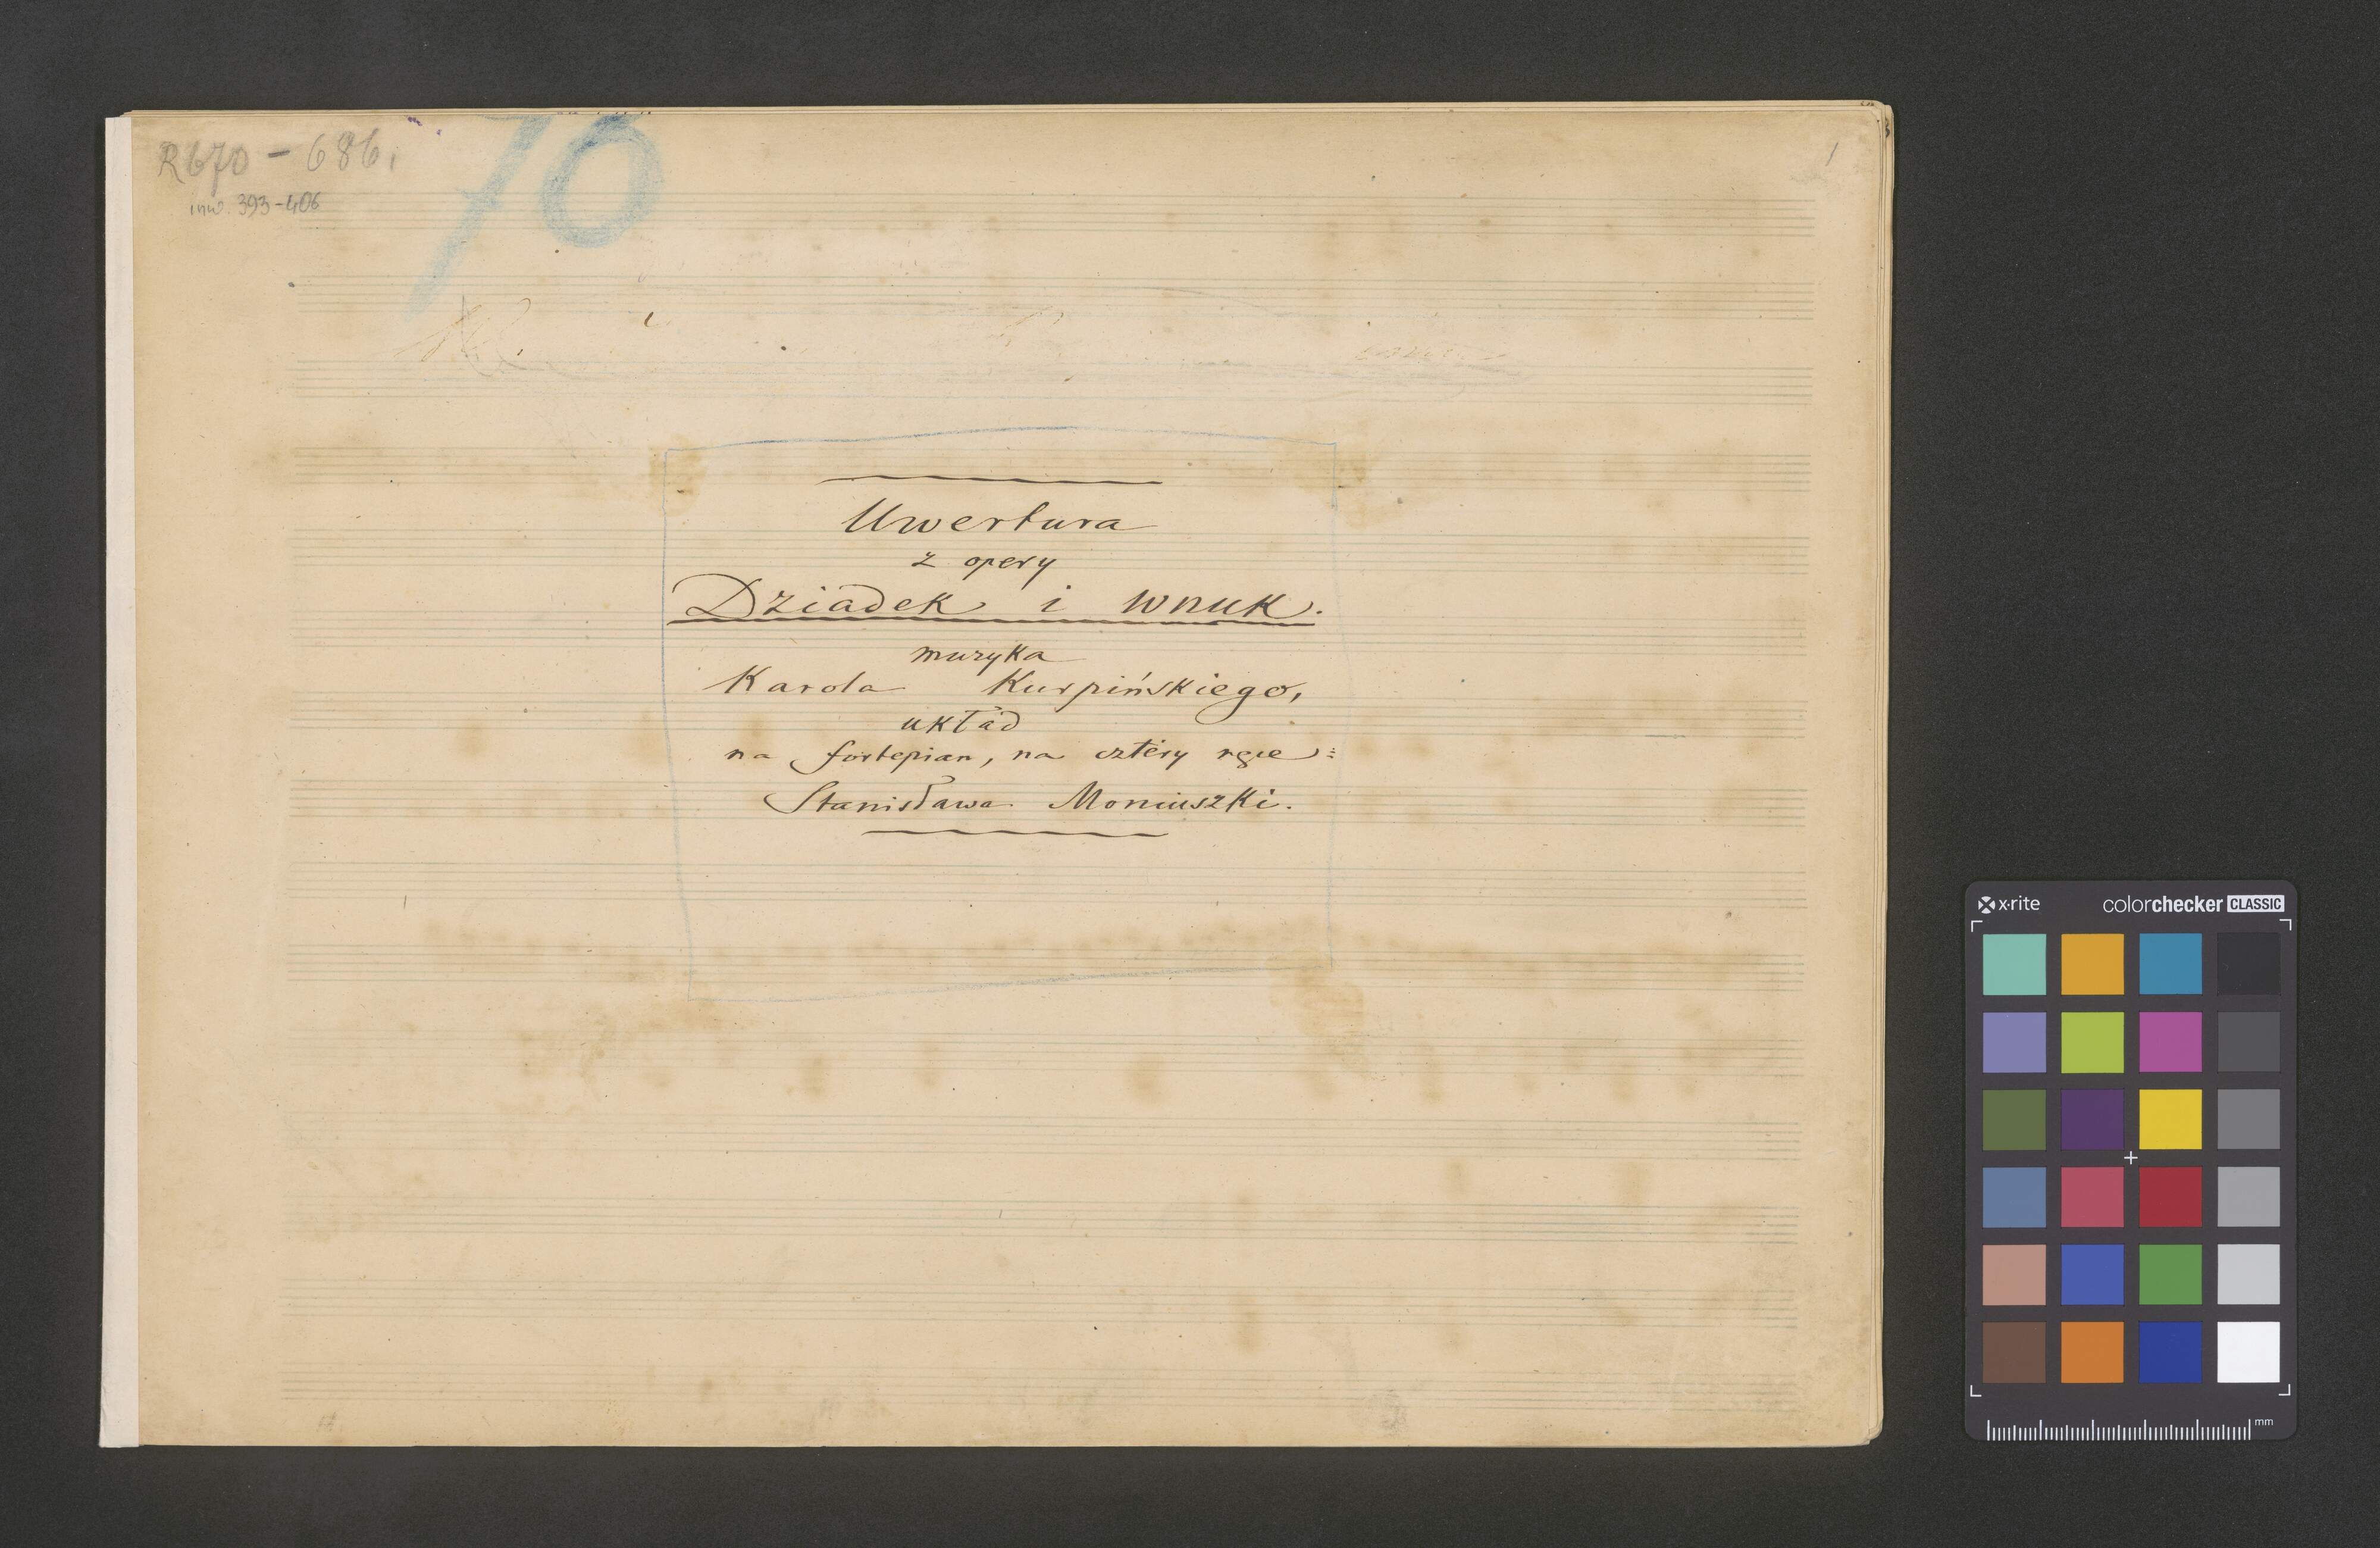 R 670 - 686.
inw. 393-406
70
1
Uwertura
z opery
Dziadek i wnuk.
muzyka
Karola Kurpińskiego,
układ
na fortepian, na cztéry ręce
Stanisława Moniuszki.
x·rite colorchecker CLASSIC
mm